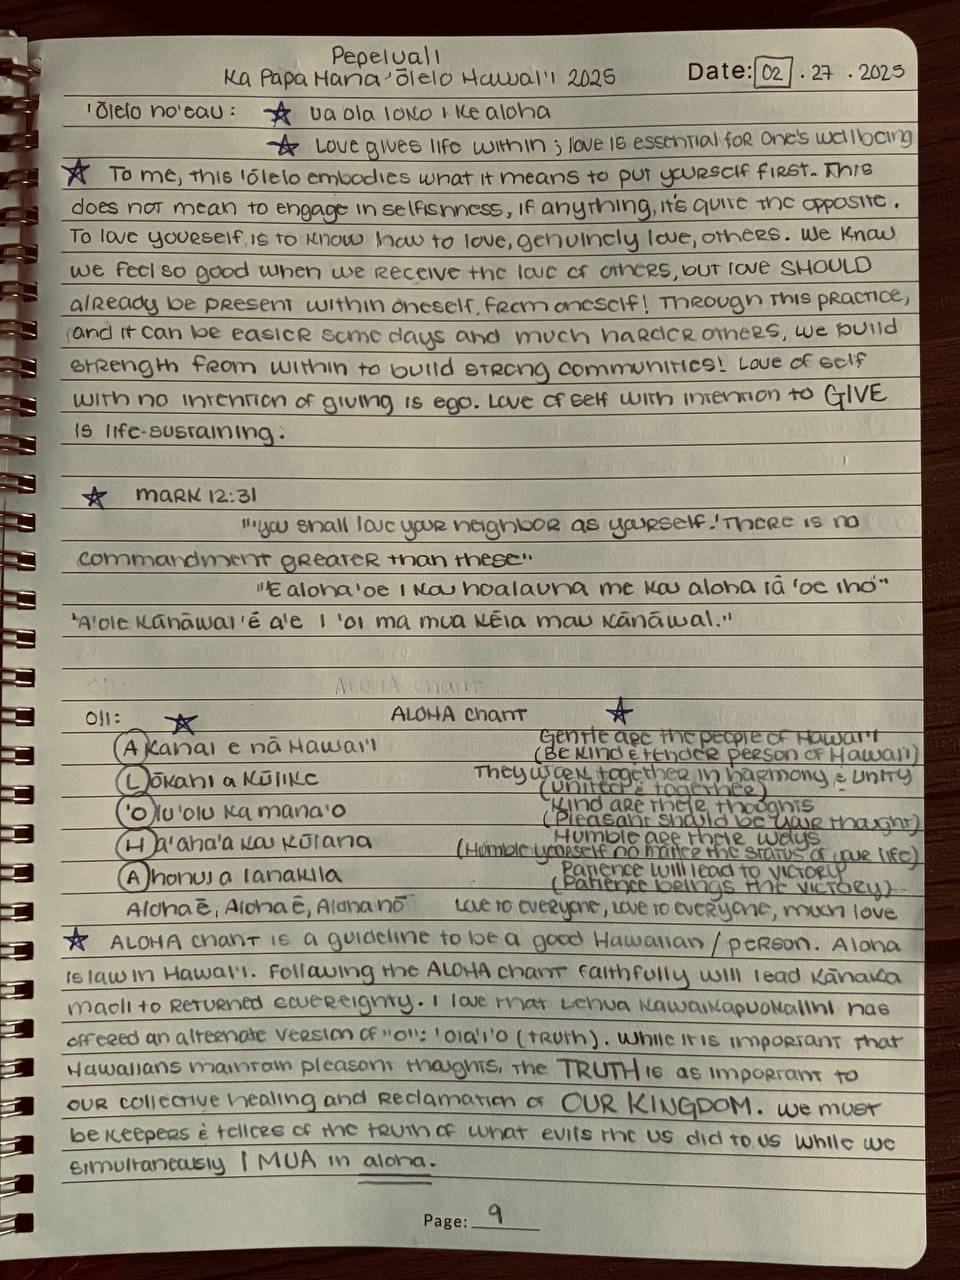 Pepeluali
Ka Papa Hana 'Ōlelo Hawai'i 2025
Date: 02 . 27 . 2025
'ōlelo no'eau: ☆ ua ola loko i ke aloha
☆ Love gives life within; love is essential for one's wellbeing
☆ To me, this 'ōlelo embodies what it means to put yourself first. This
does not mean to engage in selfishness, if anything, it's quite the opposite.
To love yourself, is to know how to love, genuinely love, others. We know
we feel so good when we receive the love of others, but love SHOULD
already be present within oneself, from oneself! Through this practice,
and it can be easier some days and much harder others, we build
strength from within to build strong communities! Love of self
with no intention of giving is ego. Love of self with intention to GIVE
is life-sustaining.
☆ Mark 12:31
"'you shall love your neighbor as yourself.' There is no
commandment greater than these"
"E aloha 'oe i kou hoalauna me kou aloha iā 'oe iho"
"A'ole kānāwai 'ē a'e i 'oi ma mua kēia mau kānāwai."
Oli: ☆ ALOHA chant ☆
Akahai e nā Hawai'i
Gentle are the people of Hawai'i
(Be kind & tender person of Hawai'i)
Lōkahi a kūlike
They work together in harmony & unity
(united & together)
'Olu'olu ka mana'o
Kind are there thoughts
(Pleasant should be your thought)
Ha'aha'a kou kūlana
Humble are there ways
(Humble yourself no matter the status of your life)
Ahonui a lanakila
Patience will lead to victory
(Patience beings the victory)
Aloha ē, Aloha ē, Aloha nō Love to everyone, love to everyone, much love
☆ ALOHA chant is a guideline to be a good Hawaiian / person. Aloha
is law in Hawai'i. Following the ALOHA chant faithfully will lead Kānaka
maoli to returned sovereignty. I love that Lehua Kawaikapuokalini has
offered an alternate version of "o": 'oia'i'o (truth). While it is important that
Hawaiians maintain pleasant thoughts, the TRUTH is as important to
our collective healing and reclamation of OUR KINGDOM. We must
be keepers & tellers of the truth of what evils the US did to us while we
simultaneously I MUA in aloha.
Page: 9